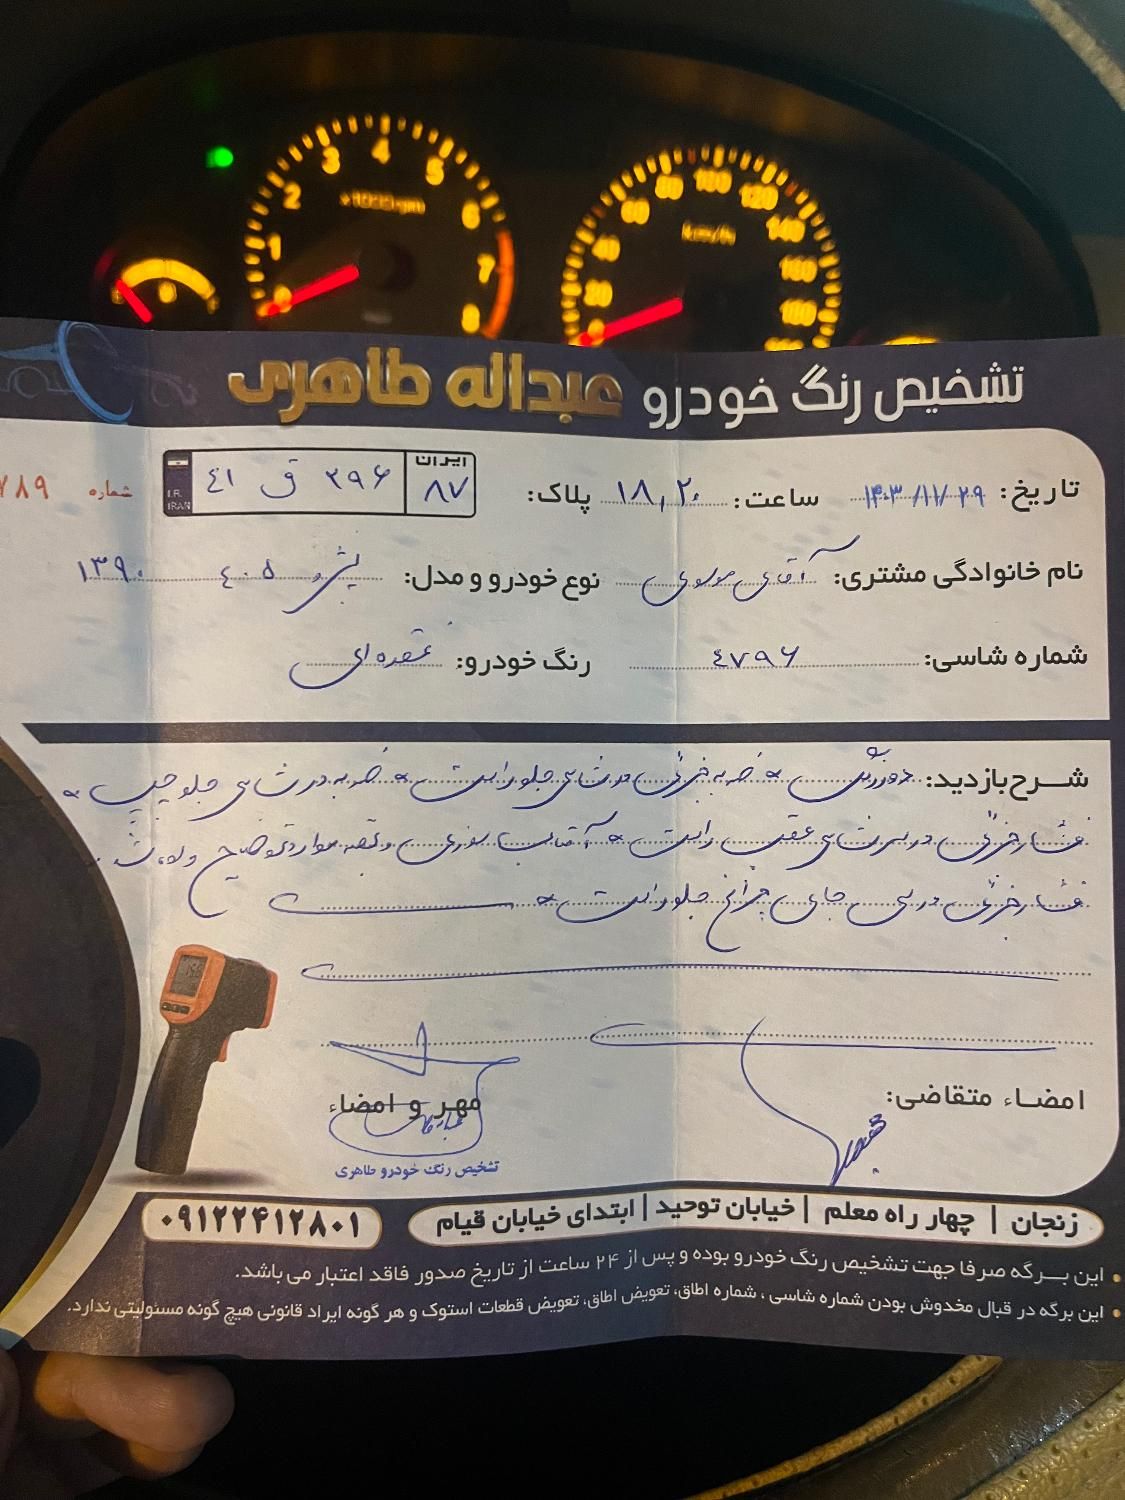 1 2 3 4 5 6 7 8
×1000rpm
0 20 40 60 80 100 120 140 160 180
km/h
تشخیص رنگ خودرو عبداله طاهری
تاریخ: ۱۴۰۳/۱۱/۲۹ ساعت: ۱۸,۲۰ پلاک: ایران ۸۷ ۳۹۶ ق ۴۱ I.R. IRAN شماره ۷۸۹
نام خانوادگی مشتری: آقای موسوی نوع خودرو و مدل: پژو ۴۰۵ ۱۳۹۰
شماره شاسی: ۴۷۹۶ رنگ خودرو: نقره‌ای
شرح بازدید: دور رنگ ضربه جزئی در شاسی جلو راست ضربه در شاسی جلو چپ
فشار جزئی در سر شاسی عقب راست آفتاب سوختگی و بقیه موارد توضیح داده شد.
فشار جزئی در سی جای چراغ جلو راست
امضاء متقاضی:
مهر و امضاء
تشخیص رنگ خودرو طاهری
زنجان | چهار راه معلم | خیابان توحید | ابتدای خیابان قیام
۰۹۱۲۲۴۱۲۸۰۱
این برگه صرفا جهت تشخیص رنگ خودرو بوده و پس از ۲۴ ساعت از تاریخ صدور فاقد اعتبار می باشد.
این برگه در قبال مخدوش بودن شماره شاسی ، شماره اطاق، تعویض اطاق، تعویض قطعات استوک و هر گونه ایراد قانونی هیچ گونه مسئولیتی ندارد.